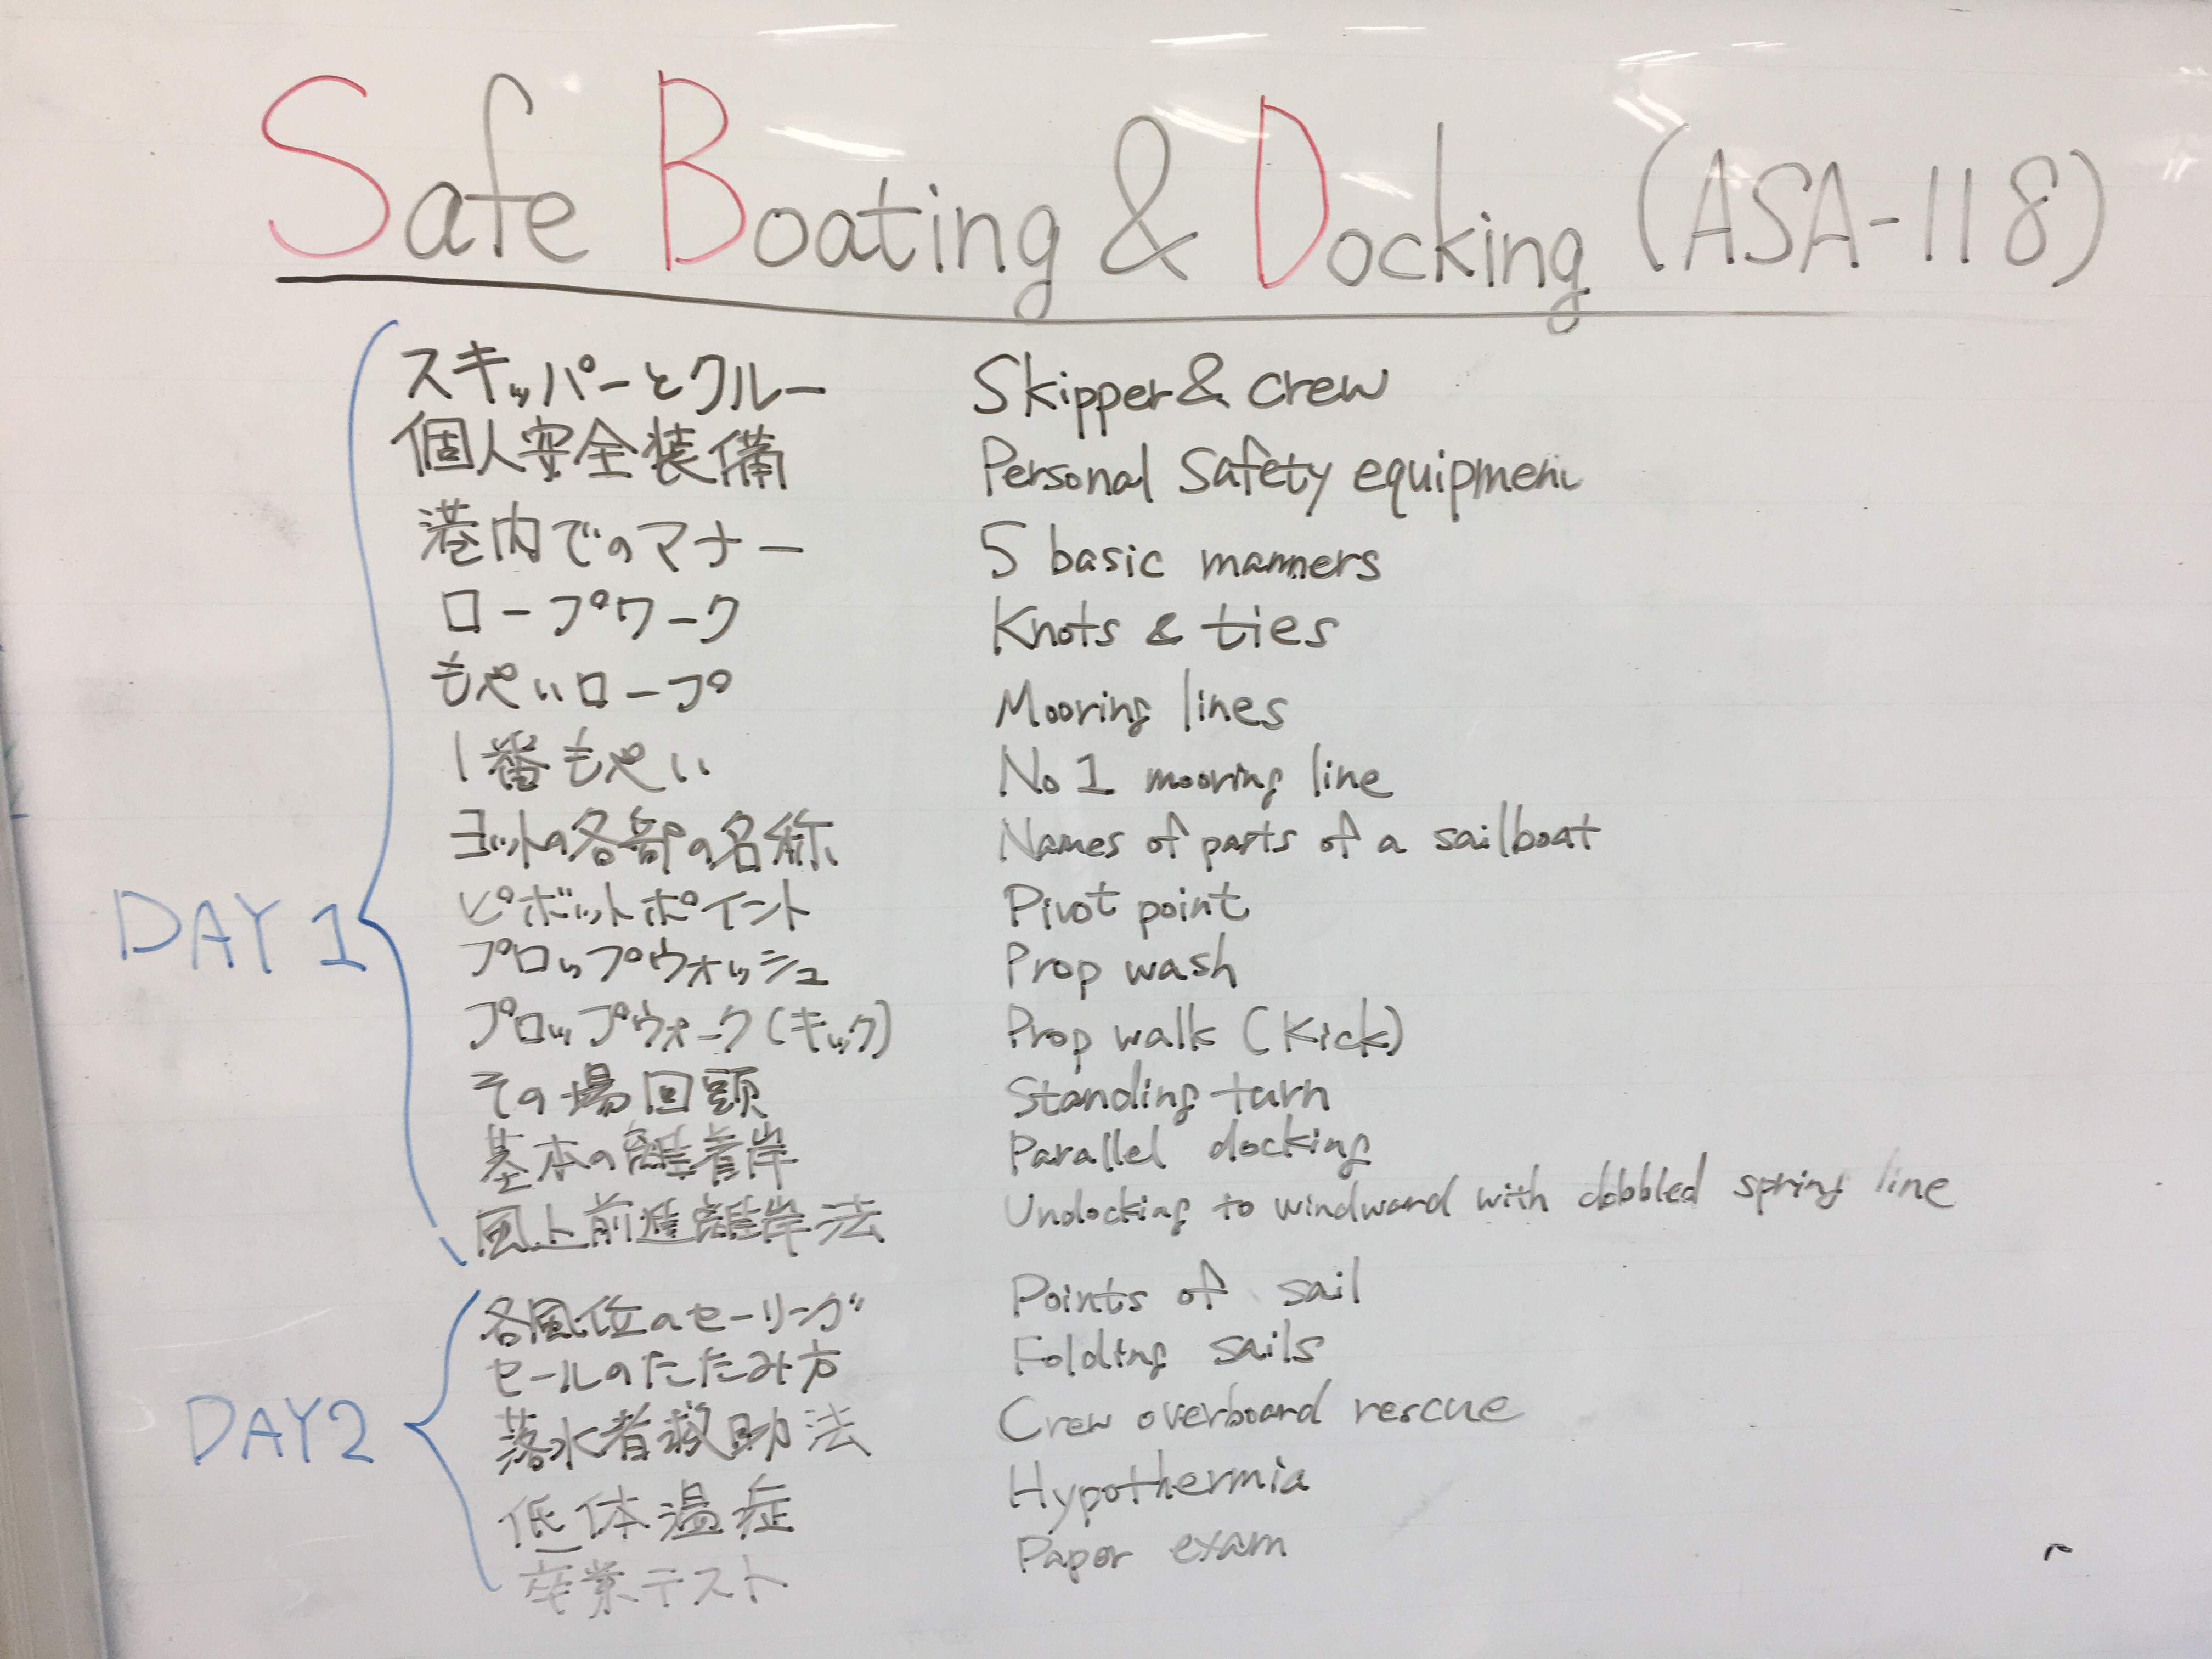 Safe Boating & Docking (ASA-118)
DAY 1
スキッパーとクルー Skipper & crew
個人安全装備 Personal Safety equipment
港内でのマナー 5 basic manners
ロープワーク Knots & ties
もやいロープ Mooring lines
1番もやい No 1 mooring line
ヨットの各部の名称 Names of parts of a sailboat
ピボットポイント Pivot point
プロップウォッシュ Prop wash
プロップウォーク(キック) Prop walk (Kick)
その場回頭 Standing turn
基本の離着岸 Parallel docking
風上前進離岸法 Undocking to windward with dobbled spring line
DAY2
各風位のセーリング Points of sail
セールのたたみ方 Folding sails
落水者救助法 Crew overboard rescue
低体温症 Hypothermia
卒業テスト Papor exam